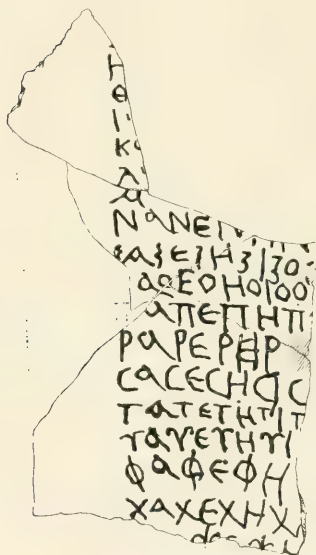 Η
Θ
Ι
Κ
Λ
Μ
ΝΑΝΕΝ
ΞΑΞΕΞΗΞΙΞΟ
ΑΟΕΟΗΟΙΟΟ
ΑΠΕΠΗΠ
ΡΑΡΕΡΗΡ
ϹΑϹΕϹΗϹΙϹ
ΤΑΤΕΤΗΤΙΤ
ΥΑΥΕΥΗΥΙ
ΦΑΦΕΦΗ
ΧΑΧΕΧΗΧ